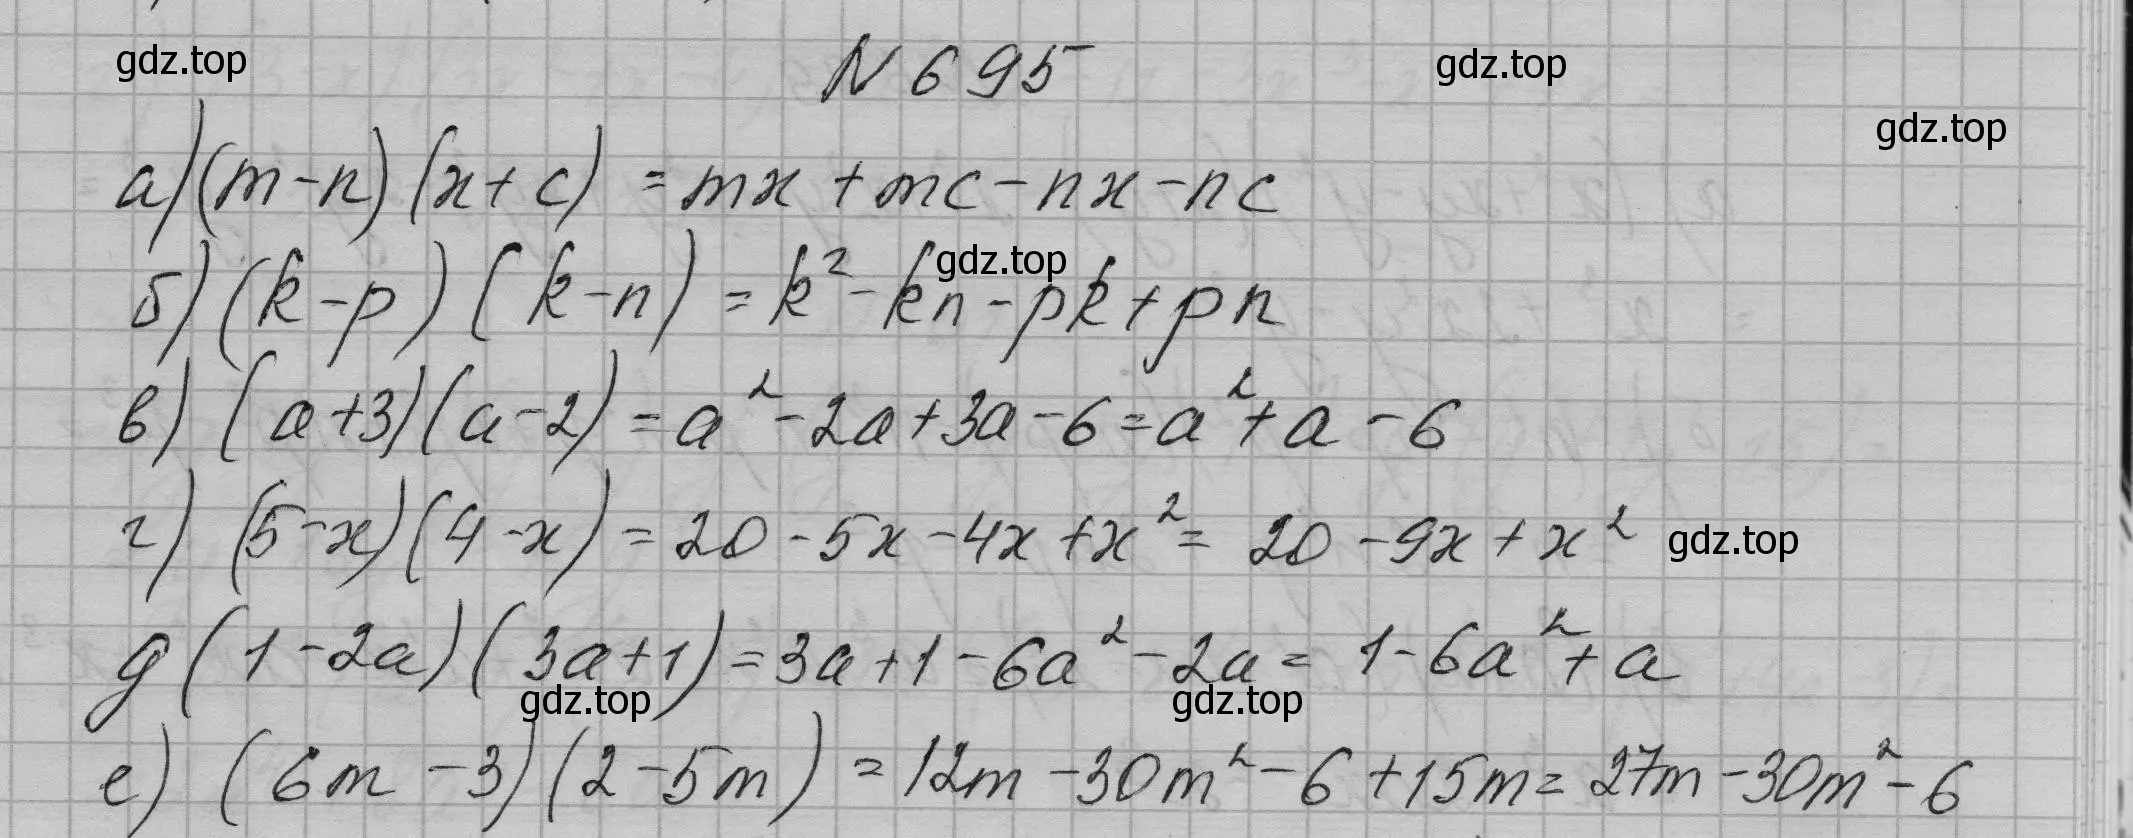 gdz.top
N 695
gdz.top
gdz.top
а) (m-n) (x+c) = mx + mc - nx - nc
gdz.top
б) (k-p) (k-n) = k² - kn - pk + pn
в) (a+3)(a-2) = a² - 2a + 3a - 6 = a² + a - 6
г) (5-x)(4-x) = 20 - 5x - 4x + x² = 20 - 9x + x²
gdz.top
д (1-2a) (3a+1) = 3a + 1 - 6a² - 2a = 1 - 6a² + a
gdz.top
gdz.top
е) (6m-3)(2-5m) = 12m - 30m² - 6 + 15m = 27m - 30m² - 6